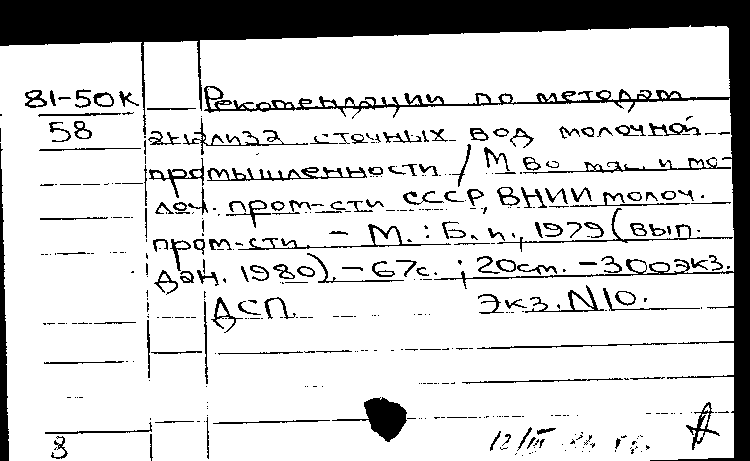 81-50К Рекомендации по методам
58 анализа сточных вод молочной
промышленности / М во мяс. и мо-
лоч. пром-сти СССР, ВНИИ молоч.
пром-сти. – М. : Б. и., 1979 (вып.
дан. 1980). – 67с. ; 20см. – 300экз.
ДСП. Экз. N10.
8 12/III